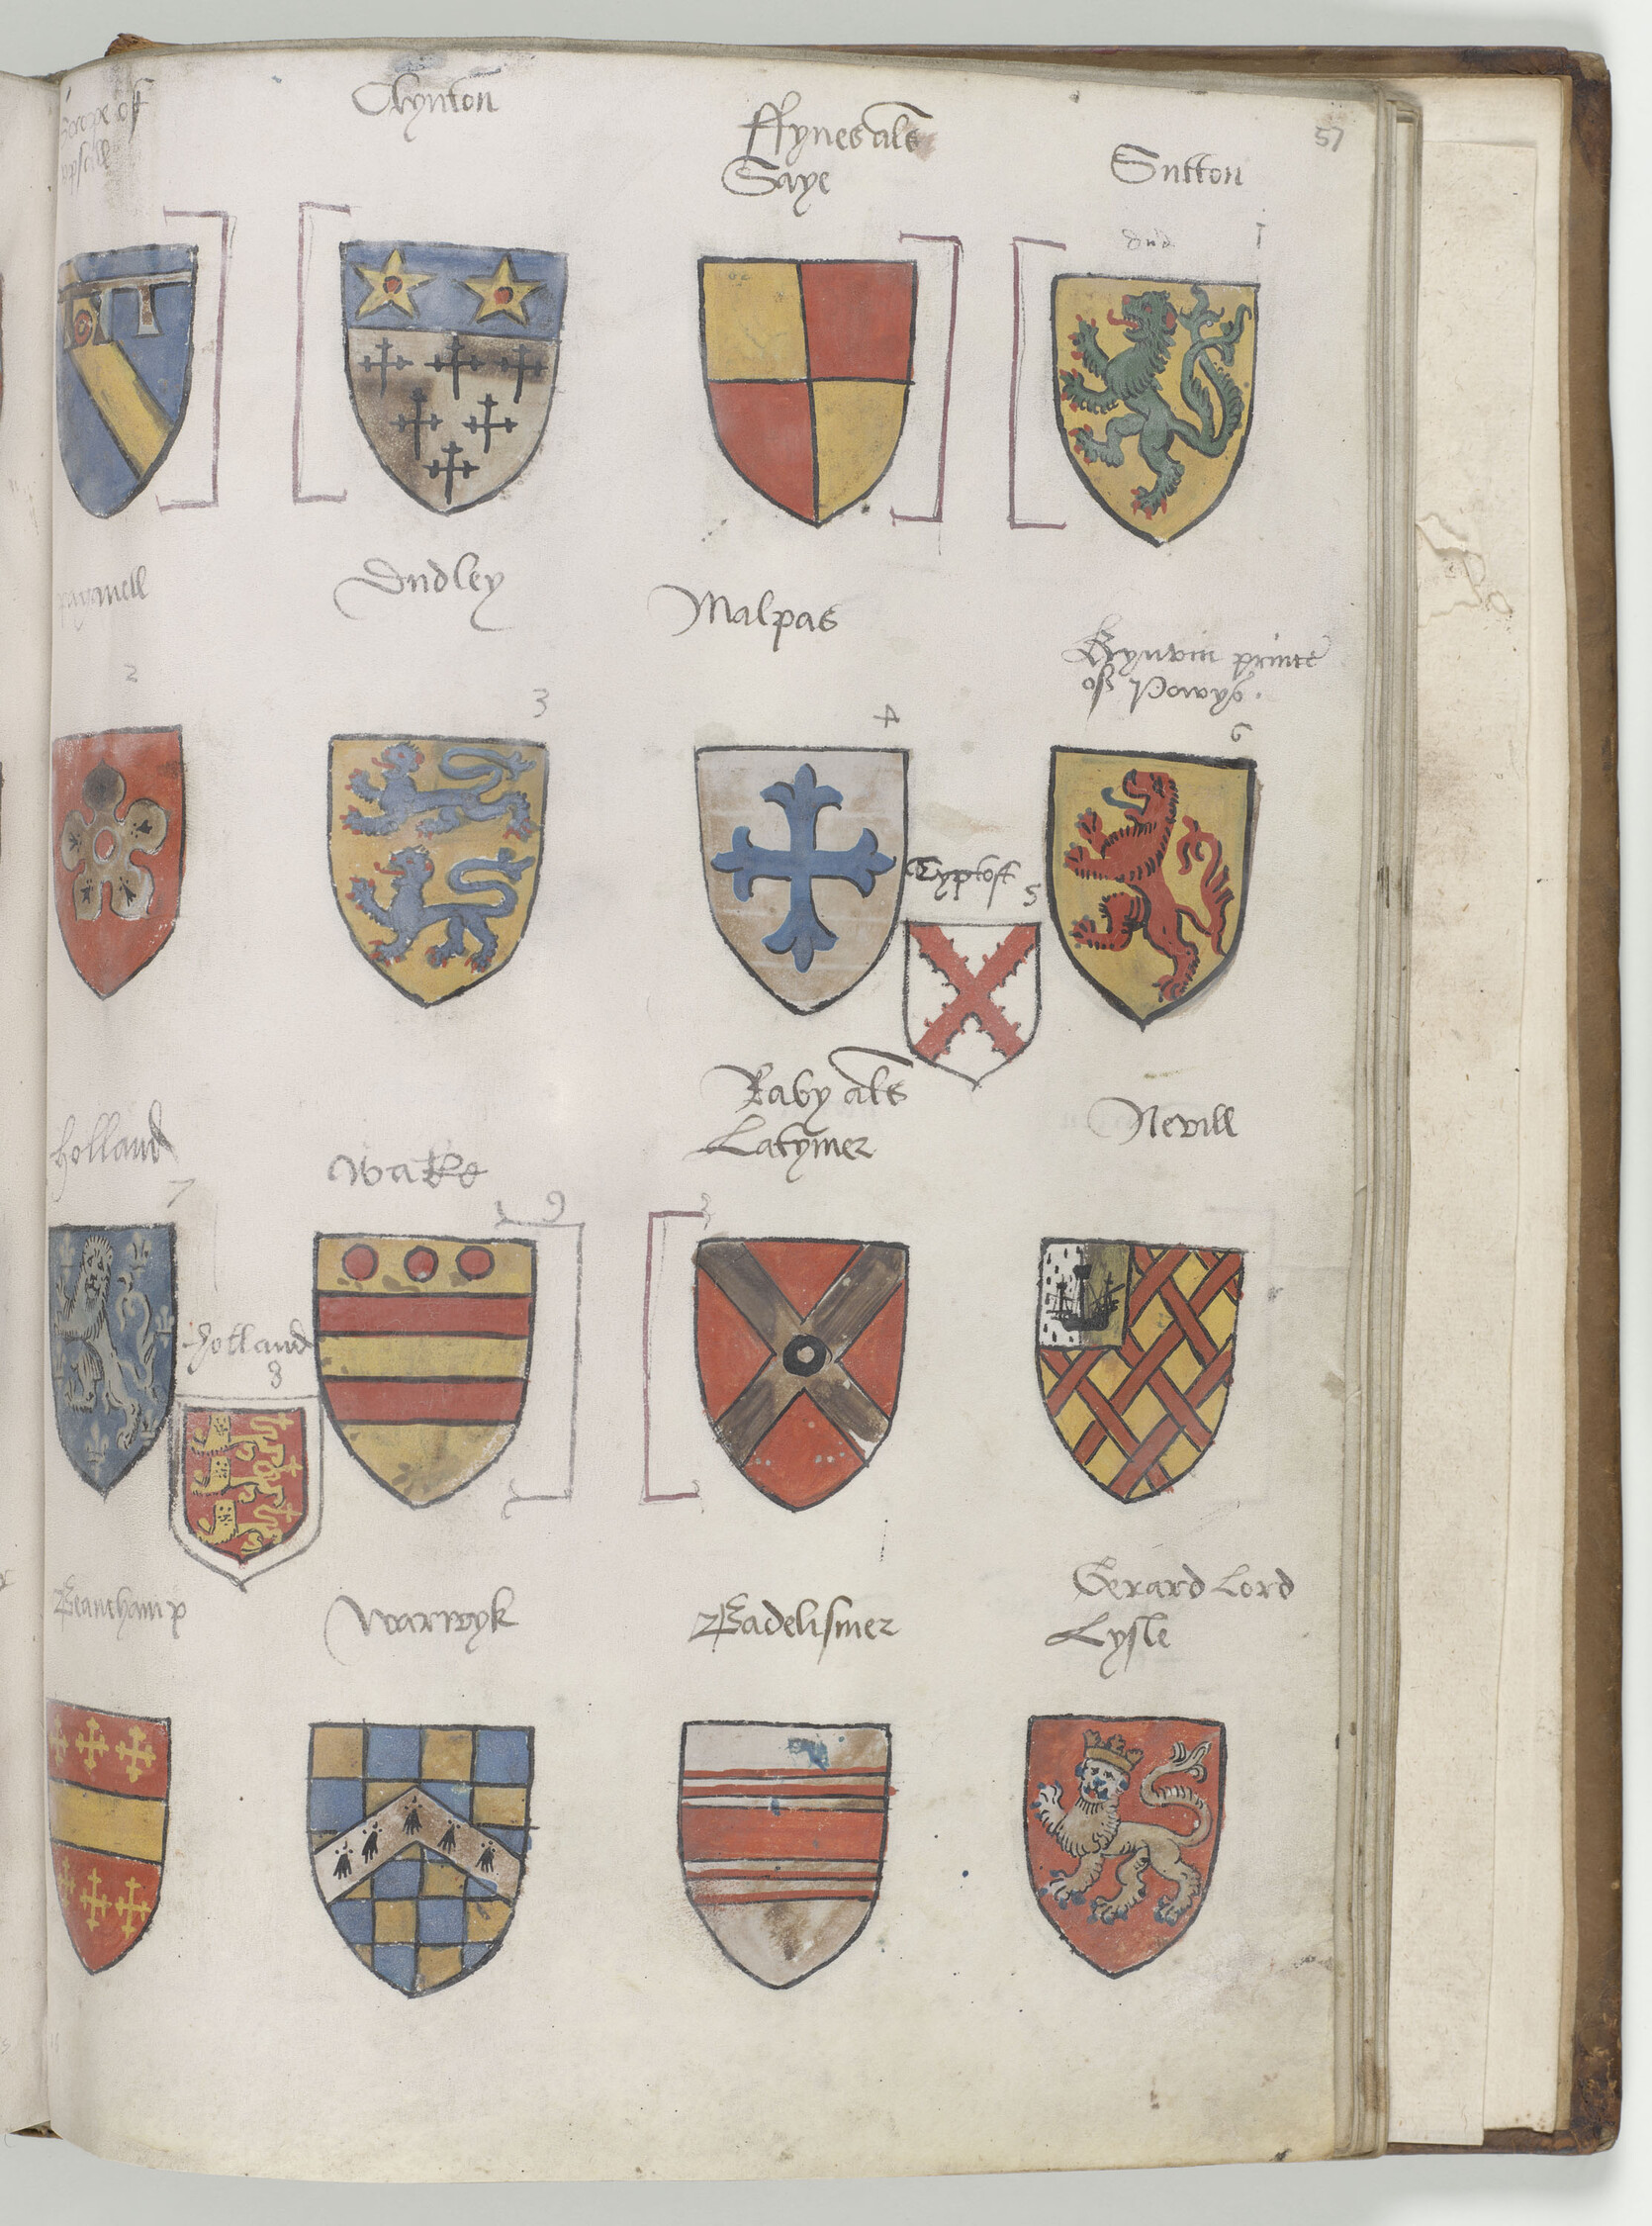 of
Clynton
ffynes als
Saye
Sutton
57
dud
1
Dudley
Malpas
prince
of Powys.
2
3
4
6
Typtoft
5
holland
7
Wake
9
Raby als
Latymer
Nevill
holland
8
Beauchamp
warwyk
Badelismer
Gerard Lord
Lysle